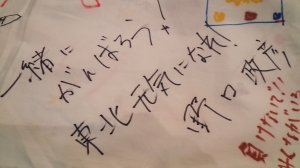 一緒に
がんばろう!
東北元気になれ!
野口 政彦